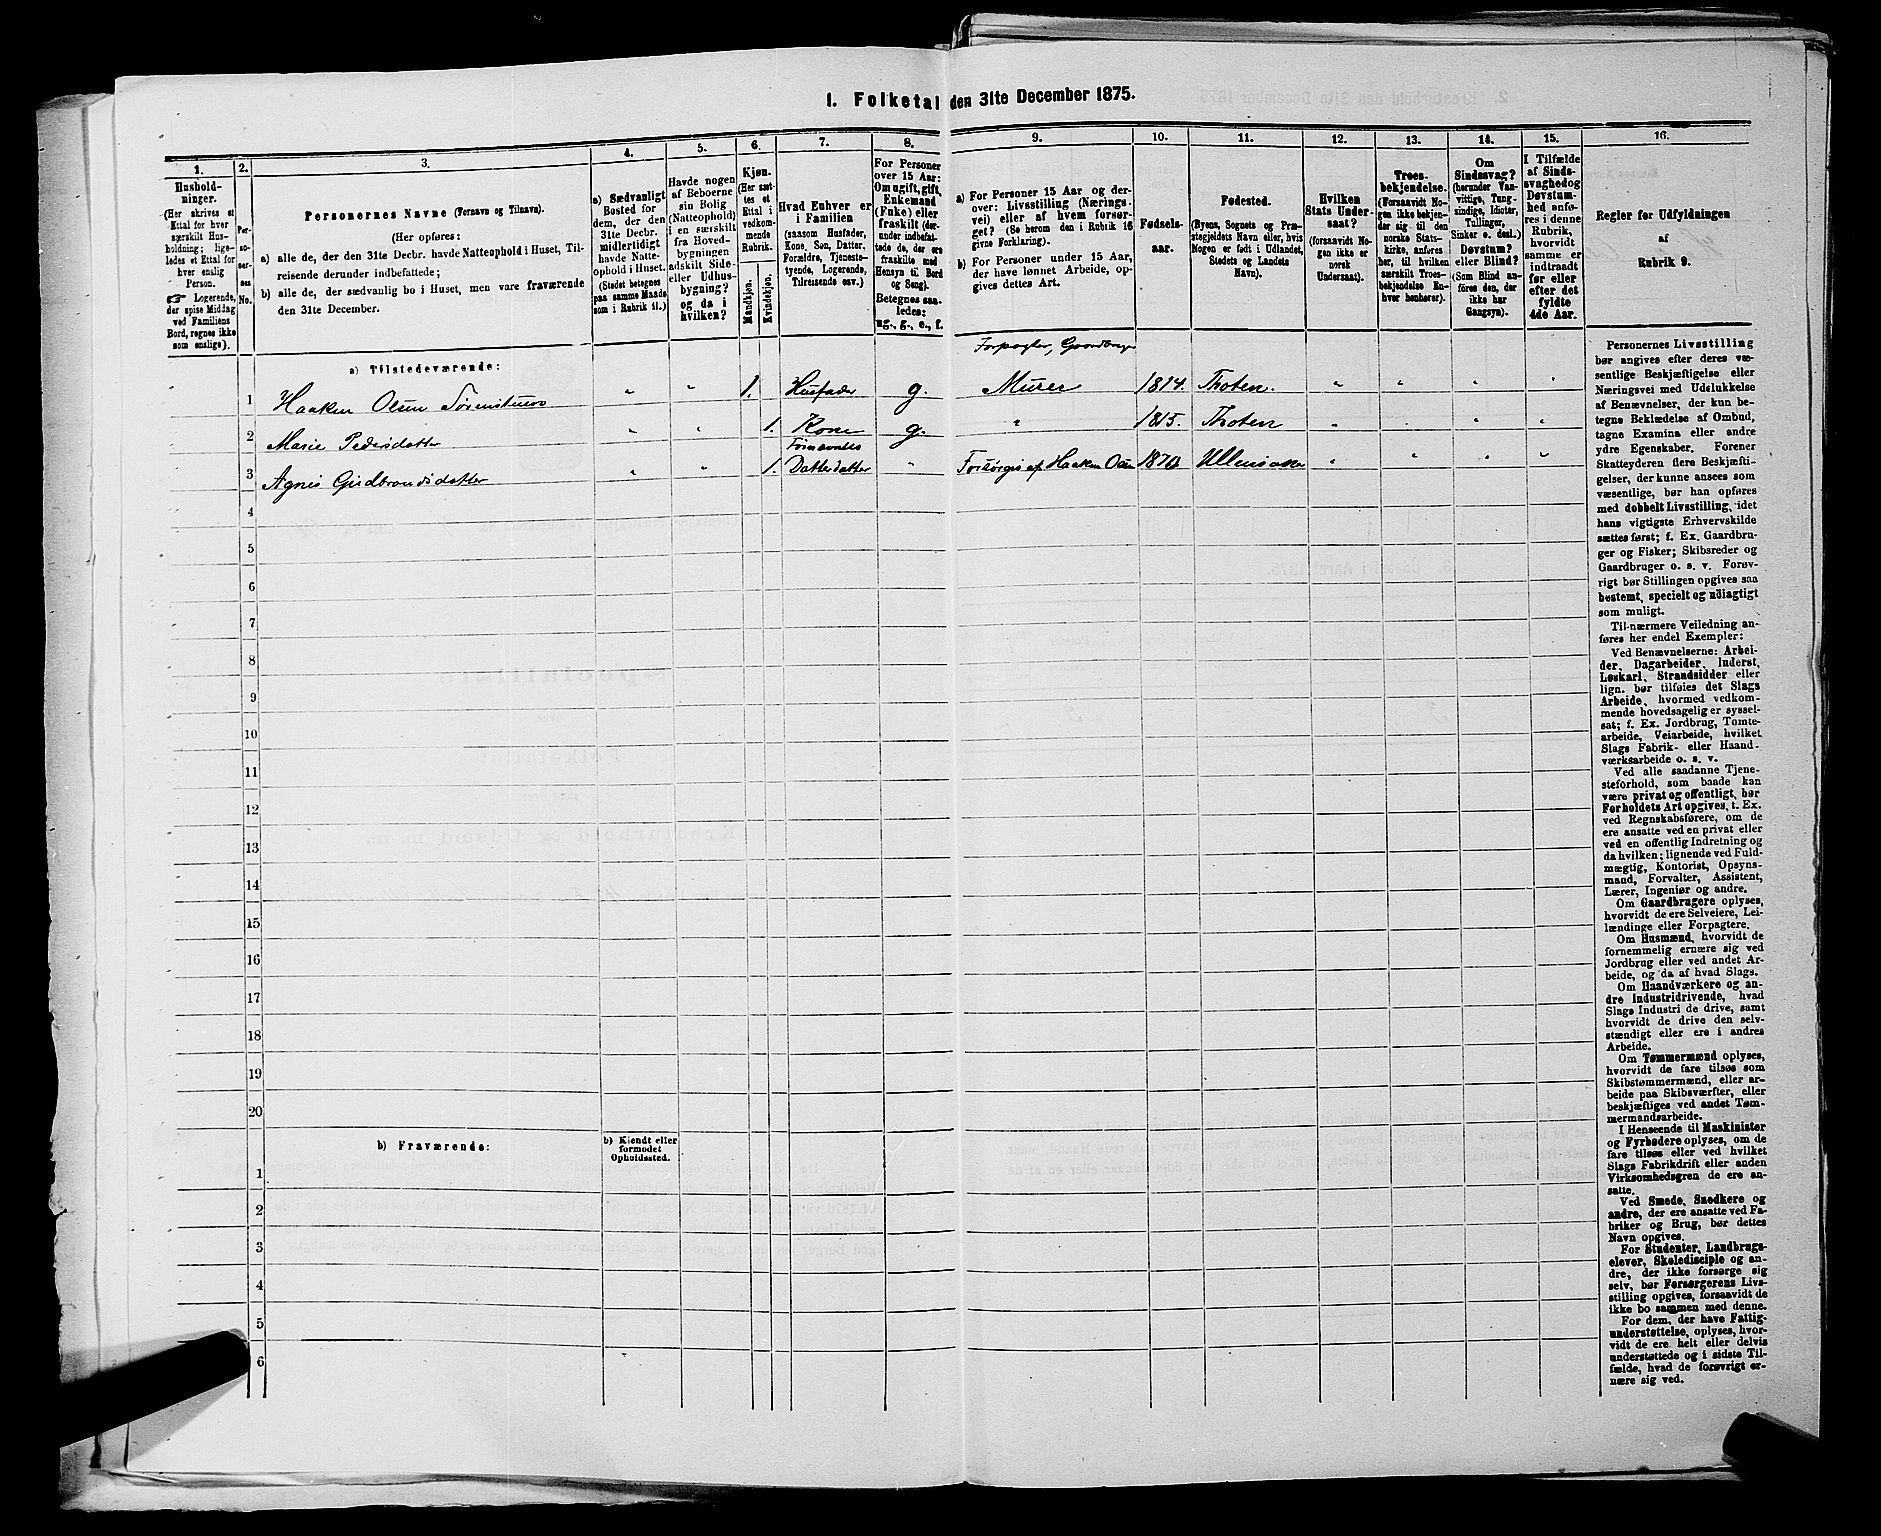 1. Folketal den 31te December 1875.
1.
2.
3.
4.
5.
6.
7.
8.
9.
10.
11.
12.
13.
14.
15.
16.
Hushold-
ninger.
(Her skrives et
Ettal for hver
særskilt Hus-
holdning; lige-
ledes et Ettal for
hver enslig
Person.
☞ Logerende,
der spise Middag
ved Familiens
Bord, regnes ikke
som enslige).
Per-
so-
ner-
nes
No.
Personernes Navne (Fornavn og Tilnavn).
(Her opføres:
a) alle de, der den 31te Decbr. havde Natteophold i Huset, Til-
reisende derunder indbefattede;
b) alle de, der sædvanlig bo i Huset, men vare fraværende
den 31te December.
a) Sædvanligt
Bosted for
dem, der den
31te Decbr.
midlertidigt
havde Natte-
ophold i Huset.
(Stedet betegnes
paa samme Maade
som i Rubrik 11.)
Havde nogen
af Beboerne
sin Bolig
(Natteophold)
i en særskilt
fra Hoved-
bygningen
adskilt Side-
eller Udhus-
bygning?
og da i
hvilken?
Kjøn.
(Her sæt-
tes et
Ettal i
vedkom-
mende
Rubrik.
Mandkjøn.
Kvindekjøn.
Hvad Enhver er
i Familien
(saasom Husfader,
Kone, Søn, Datter,
Forældre, Tjeneste-
tyende, Logerende,
Tilreisende osv.)
For Personer
over 15 Aar:
Om ugift, gift,
Enkemand
(Enke) eller
fraskilt (der-
under indbefat-
tede de, der ere
fraskilte med
Hensyn til Bord
og Seng).
Betegnes saa-
ledes:
ug., g., e., f.
a) For Personer 15 Aar og der-
over: Livsstilling (Nærings-
vei) eller af hvem forsør-
get? (Se herom den i Rubrik 16
givne Forklaring).
b) For Personer under 15 Aar,
der have lønnet Arbeide, op-
gives dettes Art.
Fødsels-
aar.
Fødested.
(Byens, Sognets og Præ-
stegjeldets Navn eller, hvis
Nogen er født i Udlandet,
Stedets og Landets
Navn).
Hvilken
Stats Under-
saat?
(forsaavidt No-
gen ikke er
norsk
Undersaat).
Troes-
bekjendelse.
(Forsaavidt No-
gen ikke bekjen-
der sig til den
norske Stats-
kirke, anføres
her, til hvilken
særskilt Troes-
bekjendelse En-
hver henhører).
Om
Sindssvag?
(herunder Van-
vittige, Tung-
sindige, Idioter,
Tullinger,
Sinker o. desl.)
Døvstum?
eller Blind?
(Som Blind an-
føres den, der
ikke har
Gangsyn).
I Tilfælde
af Sinds-
svaghed og
Døvstum-
hed anfø-
res i denne
Rubrik,
hvorvidt
samme er
indtraadt
før eller
efter det
fyldte
4de Aar.
Regler for Udfyldningen
af
Rubrik 9.
a) Tilstedeværende:
Forpagter, Gaardbruger
1 Haaken Olsen Sørenstuen " " 1. Husfader g. Murer 1814. Thoten. " " " "
2 Marie Pedersdatter " " 1. Kone g. " 1815. Thoten " " " "
3 Agnes Gudbrandsdatter " " 1. Datterdatter " Forsørges af Haaken Olsen 1870 Ullensaker " " " "
4
5
6
7
8
9
10
11
12
13
14
15
16
17
18
19
20
b) Fraværende:
b) Kjendt eller
formodet
Opholdssted.
1
2
3
4
5
6
Personernes Livsstilling
bør angives efter deres væ-
sentlige Beskjæftigelse eller
Næringsvei med Udelukkelse
af Benævnelser, der kun be-
tegne Beklædelse af Ombud,
tagne Examina eller andre
ydre Egenskaber. Forener
Skatteyderen flere Beskjæfti-
gelser, der kunne ansees som
væsentlige, bør han opføres
med dobbelt Livsstilling, idet
hans vigtigste Erhvervskilde
sættes først; f. Ex. Gaardbru-
ger og Fisker; Skibsreder og
Gaardbruger o. s. v. Forøv-
rigt bør Stillingen opgives saa
bestemt, specielt og nöiagtigt
som muligt.
Til nærmere Veiledning an-
føres her endel Exempler:
Ved Benævnelserne: Arbei-
der, Dagarbeider, Inderst,
Løskarl, Strandsidder eller
lign. bør tilføies det Slags
Arbeide, hvormed vedkom-
mende hovedsagelig er syssel-
sat; f. Ex. Jordbrug, Tomte-
arbeide, Veiarbeide, hvilket
Slags Fabrik- eller Haand-
værksarbeide o. s. v.
Ved alle saadanne Tjene-
steforhold, som baade kan
være privat og offentligt, bør
Forholdets Art opgives, t. Ex.
ved Regnskabsførere, om de
ere ansatte ved en privat eller
ved en offentlig Indretning og
da hvilken; lignende ved Fuld-
mægtig, Kontorist, Opsyns-
mand, Forvalter, Assistent,
Lærer, Ingeniør og andre.
Om Gaardbrugere oplyses,
hvorvidt de ere Selveiere, Lei-
lændinge eller Forpagtere.
Om Husmænd, hvorvidt de
fornemmelig ernære sig ved
Jordbrug eller ved andet Ar-
beide, og da af hvad Slags.
Om Haandværkere og an-
dre Industridrivende, hvad
Slags Industri de drive, samt
hvorvidt de drive den selv-
stændigt eller ere i andres
Arbeide.
Om Tømmermænd oplyses,
hvorvidt de fare tilsøs som
Skibstømmermænd, eller ar-
beide paa Skibsværfter, eller
beskjæftiges ved andet Tøm-
mermandsarbeide.
I Henseende til Maskinister
og Fyrbødere oplyses, om de
fare tilsøs eller ved hvilket
Slags Fabrikdrift eller anden
Virksomhedsgren de ere an-
satte.
Ved Smede, Snedkere og
andre, der ere ansatte ved Fa-
briker og Brug, bør dettes
Navn opgives.
For Studenter, Landbrugs-
elever, Skoledisciple og an-
dre, der ikke forsørge sig
selv, bør Forsørgerens Livs-
stilling opgives, forsaavidt de
ikke bo sammen med denne.
For dem, der have Fattig-
understøttelse, oplyses, hvor-
vidt de ere helt eller delvis
understøttede og i sidste Til-
fælde, hvad de forøvrigt er-
nære sig ved.